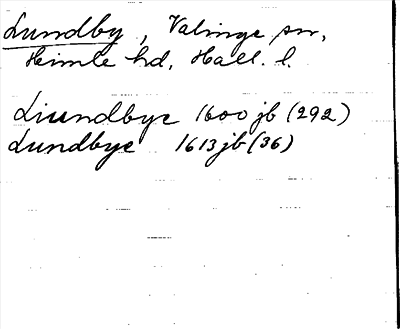 Lundby, Valinge sn,
Himle hd, Hall. l.
Liundbye 1600 jb (292)
Lundbye 1613 jb (36)